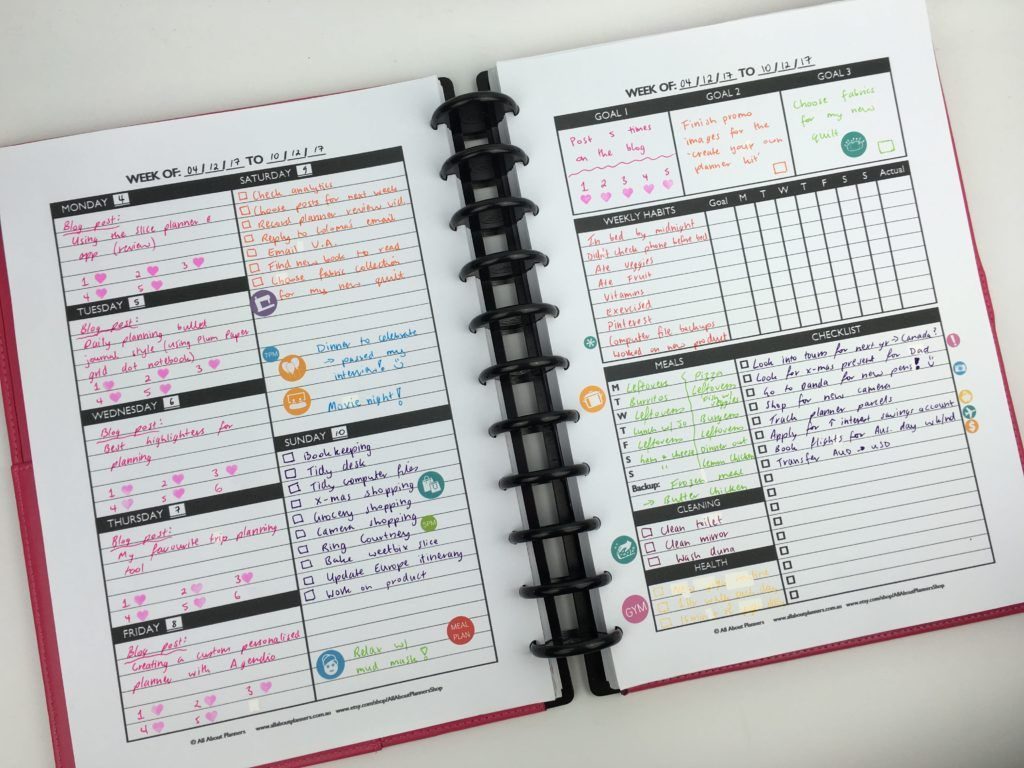 WEEK OF: 04/12/17 TO 10/12/17
MONDAY 4
Blog post:
Using the slice planner &
app (review)
1 2 3
4 5
TUESDAY 5
Blog post:
Daily planning bullet
journal style (using Plum Paper
grid dot notebook)
1 2 3
4 5
WEDNESDAY 6
Blog post:
Best highlighters for
planning
1 2 3
4 5 6
THURSDAY 7
Blog post:
My favourite trip planning
tool
1 2 3
4 5 6
FRIDAY 8
Blog post:
Creating a custom personalised
planner with Agendio
1 2 3
4 5
SATURDAY 9
Check analytics
Choose posts for next week
Record planner review vid.
Reply to Coloma's email
Email V.A.
Find new book to read
Choose fabric collection
for my new quilt
7PM
Dinner to celebrate
→ passed my
interview!
Movie night!
SUNDAY 10
Bookkeeping
Tidy desk
Tidy computer files
x-mas shopping
Grocery shopping
Camera shopping
Ring Courtney
5PM
Bake weetbix slice
Update Europe itinerary
Work on product
MEAL
PLAN
Relax w/
mud mask!
© All About Planners www.allaboutplanners.com.au www.etsy.com/shop/AllAboutPlannersShop
WEEK OF: 04/12/17 TO 10/12/17
GOAL 1
Post 5 times
on the blog
1 2 3 4 5
GOAL 2
Finish promo
images for the
'create your own
planner kit'
GOAL 3
Choose fabrics
for my new
quilt
WEEKLY HABITS Goal M T W T F S S Actual
In bed by midnight
Didn't check phone before bed
Ate veggies
Ate Fruit
Vitamins
Exercised
Pinterest
Computer file backups
Worked on new product
MEALS
M Leftovers Pizza
T Burritos Leftovers
W Leftovers
T Lunch w/ Jo Burgers
F Leftovers Leftovers
S ham & cheese Dinner out
S " Lemon chicken
Backup: Frozen meal
→ Butter Chicken
CLEANING
Clean toilet
Clean mirror
Wash duna
HEALTH
GYM
CHECKLIST
Look into tours for next yr → Canada?
Look for x-mas present for Dad
Go to Daiso for new pens!
Shop for new camera
Track planner parcels
Apply for ↑ interest savings account
Book flights for Aus. day w/end
Transfer AUD → USD
© All About Planners www.allaboutplanners.com.au www.etsy.com/shop/AllAboutPlannersShop